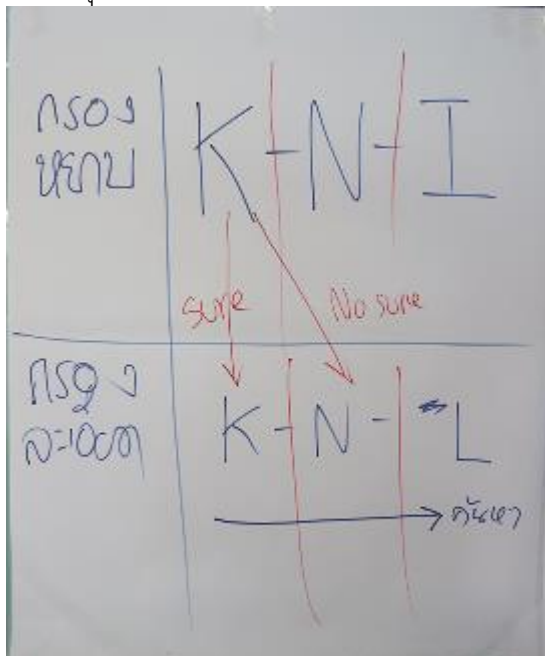 กรอง
หยาบ
K - N - I
sure
No sure
กรอง
ละเอียด
K - N - *L
ค้นหา